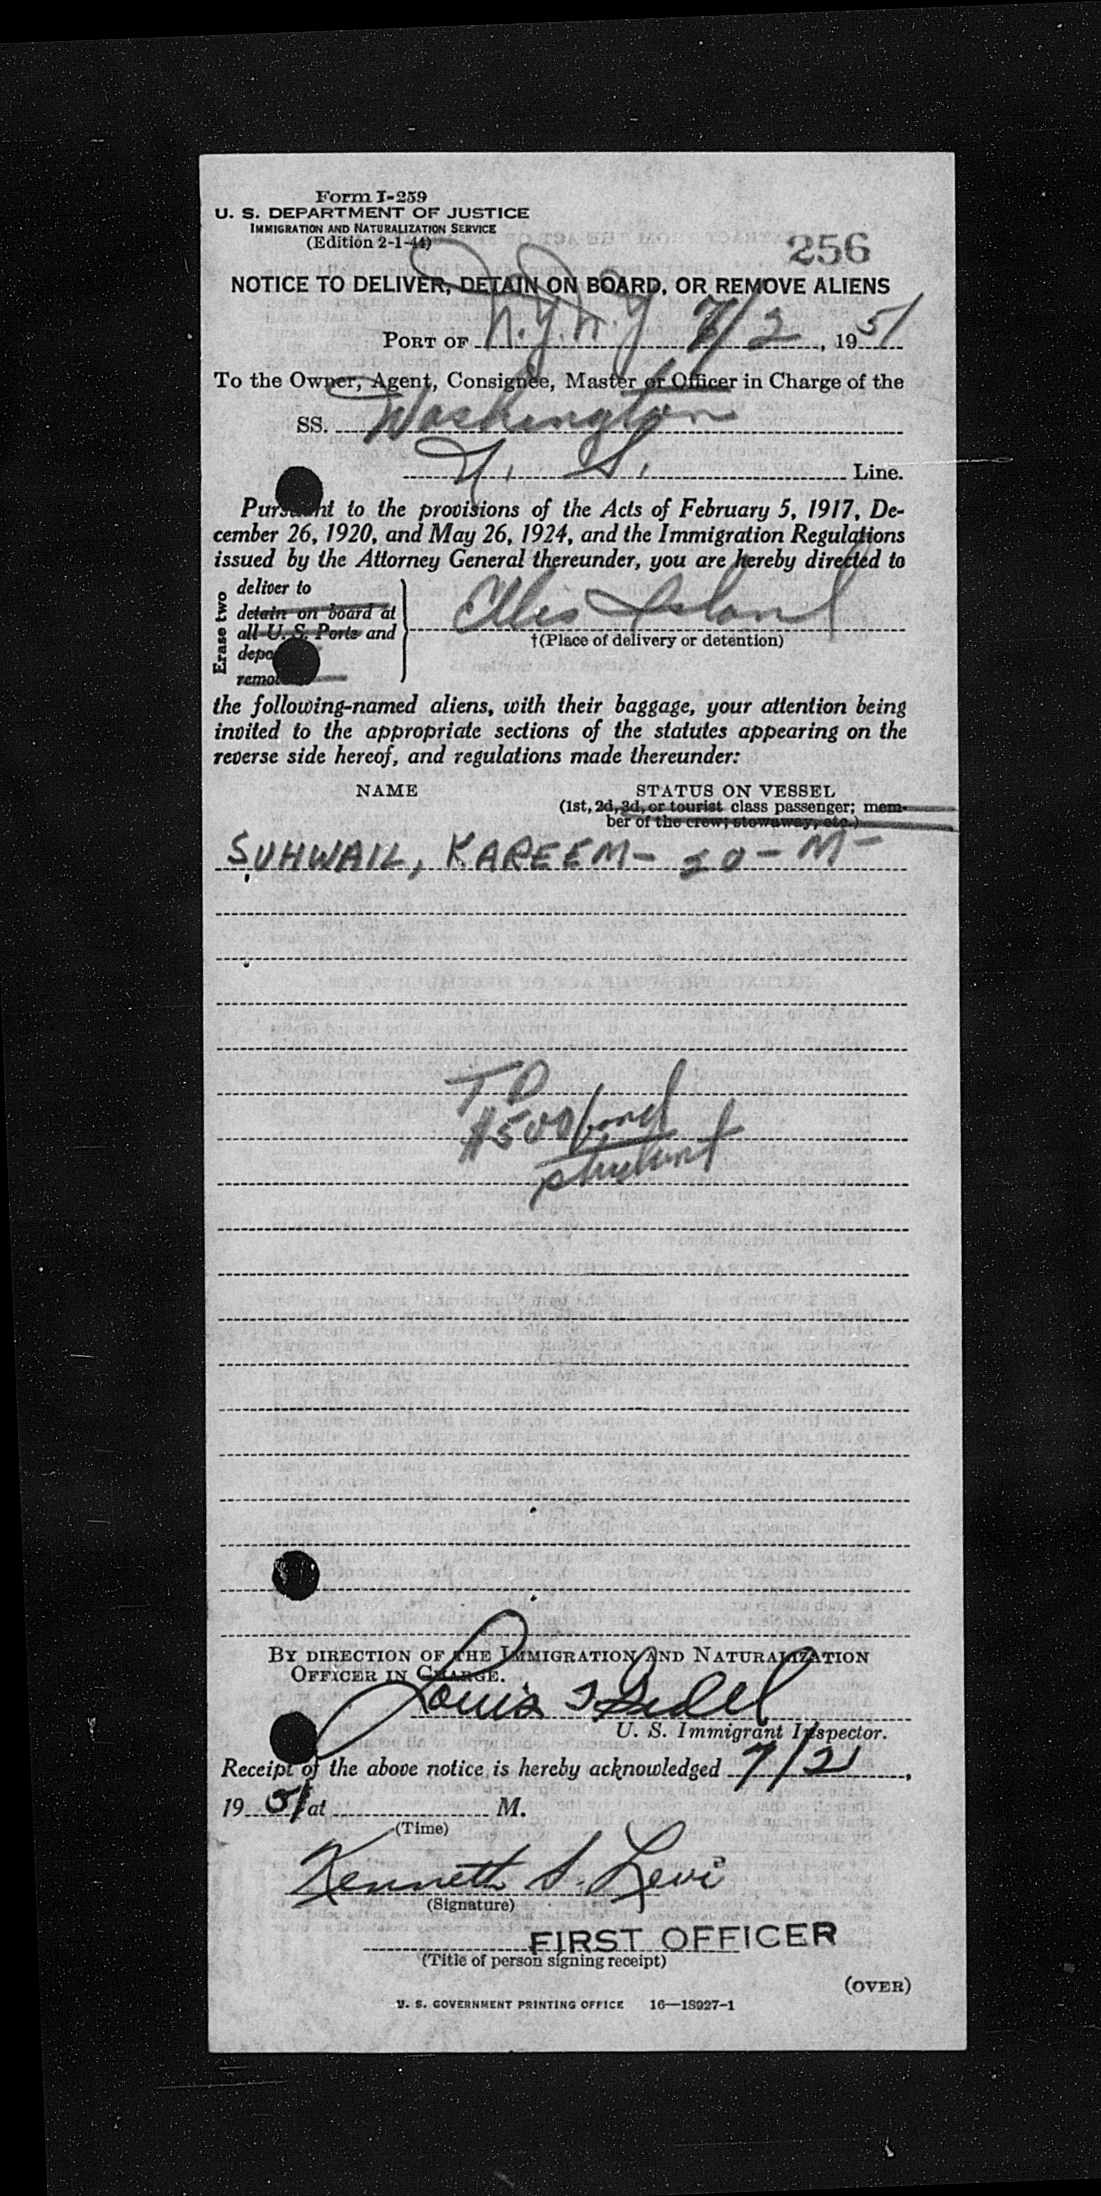 Form I-259
U. S. DEPARTMENT OF JUSTICE
IMMIGRATION AND NATURALIZATION SERVICE
(Edition 2-1-44)
256
NOTICE TO DELIVER, DETAIN ON BOARD, OR REMOVE ALIENS
PORT OF N.Y.N.Y 7/2, 1951
To the Owner, Agent, Consignee, Master or Officer in Charge of the
SS. Washington
U. S. Line.
Pursuant to the provisions of the Acts of February 5, 1917, De-
cember 26, 1920, and May 26, 1924, and the Immigration Regulations
issued by the Attorney General thereunder, you are hereby directed to
Erase two
deliver to
detain on board at
all U. S. Ports and
depo
remo
Ellis Island
†(Place of delivery or detention)
the following-named aliens, with their baggage, your attention being
invited to the appropriate sections of the statutes appearing on the
reverse side hereof, and regulations made thereunder:
NAME STATUS ON VESSEL
(1st, 2d, 3d, or tourist class passenger; mem-
ber of the crew; stowaway, etc.)
SUHWAIL, KAREEM - 20 - M -
T D
$500 bond
student
BY DIRECTION OF THE IMMIGRATION AND NATURALIZATION
OFFICER IN CHARGE.
Louis
U. S. Immigrant Inspector.
Receipt of the above notice is hereby acknowledged 7/2,
1951 at M.
(Time)
Kenneth S. Levi
(Signature)
FIRST OFFICER
(Title of person signing receipt)
(OVER)
U. S. GOVERNMENT PRINTING OFFICE 16—18927-1